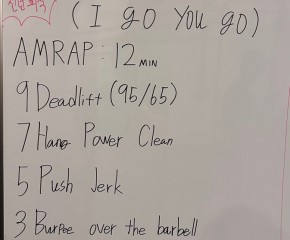 ( I go You go)
AMRAP : 12 MIN
9 Deadlift (95/65)
7 Hang Power Clean
5 Push Jerk
3 Burpee over the barbell